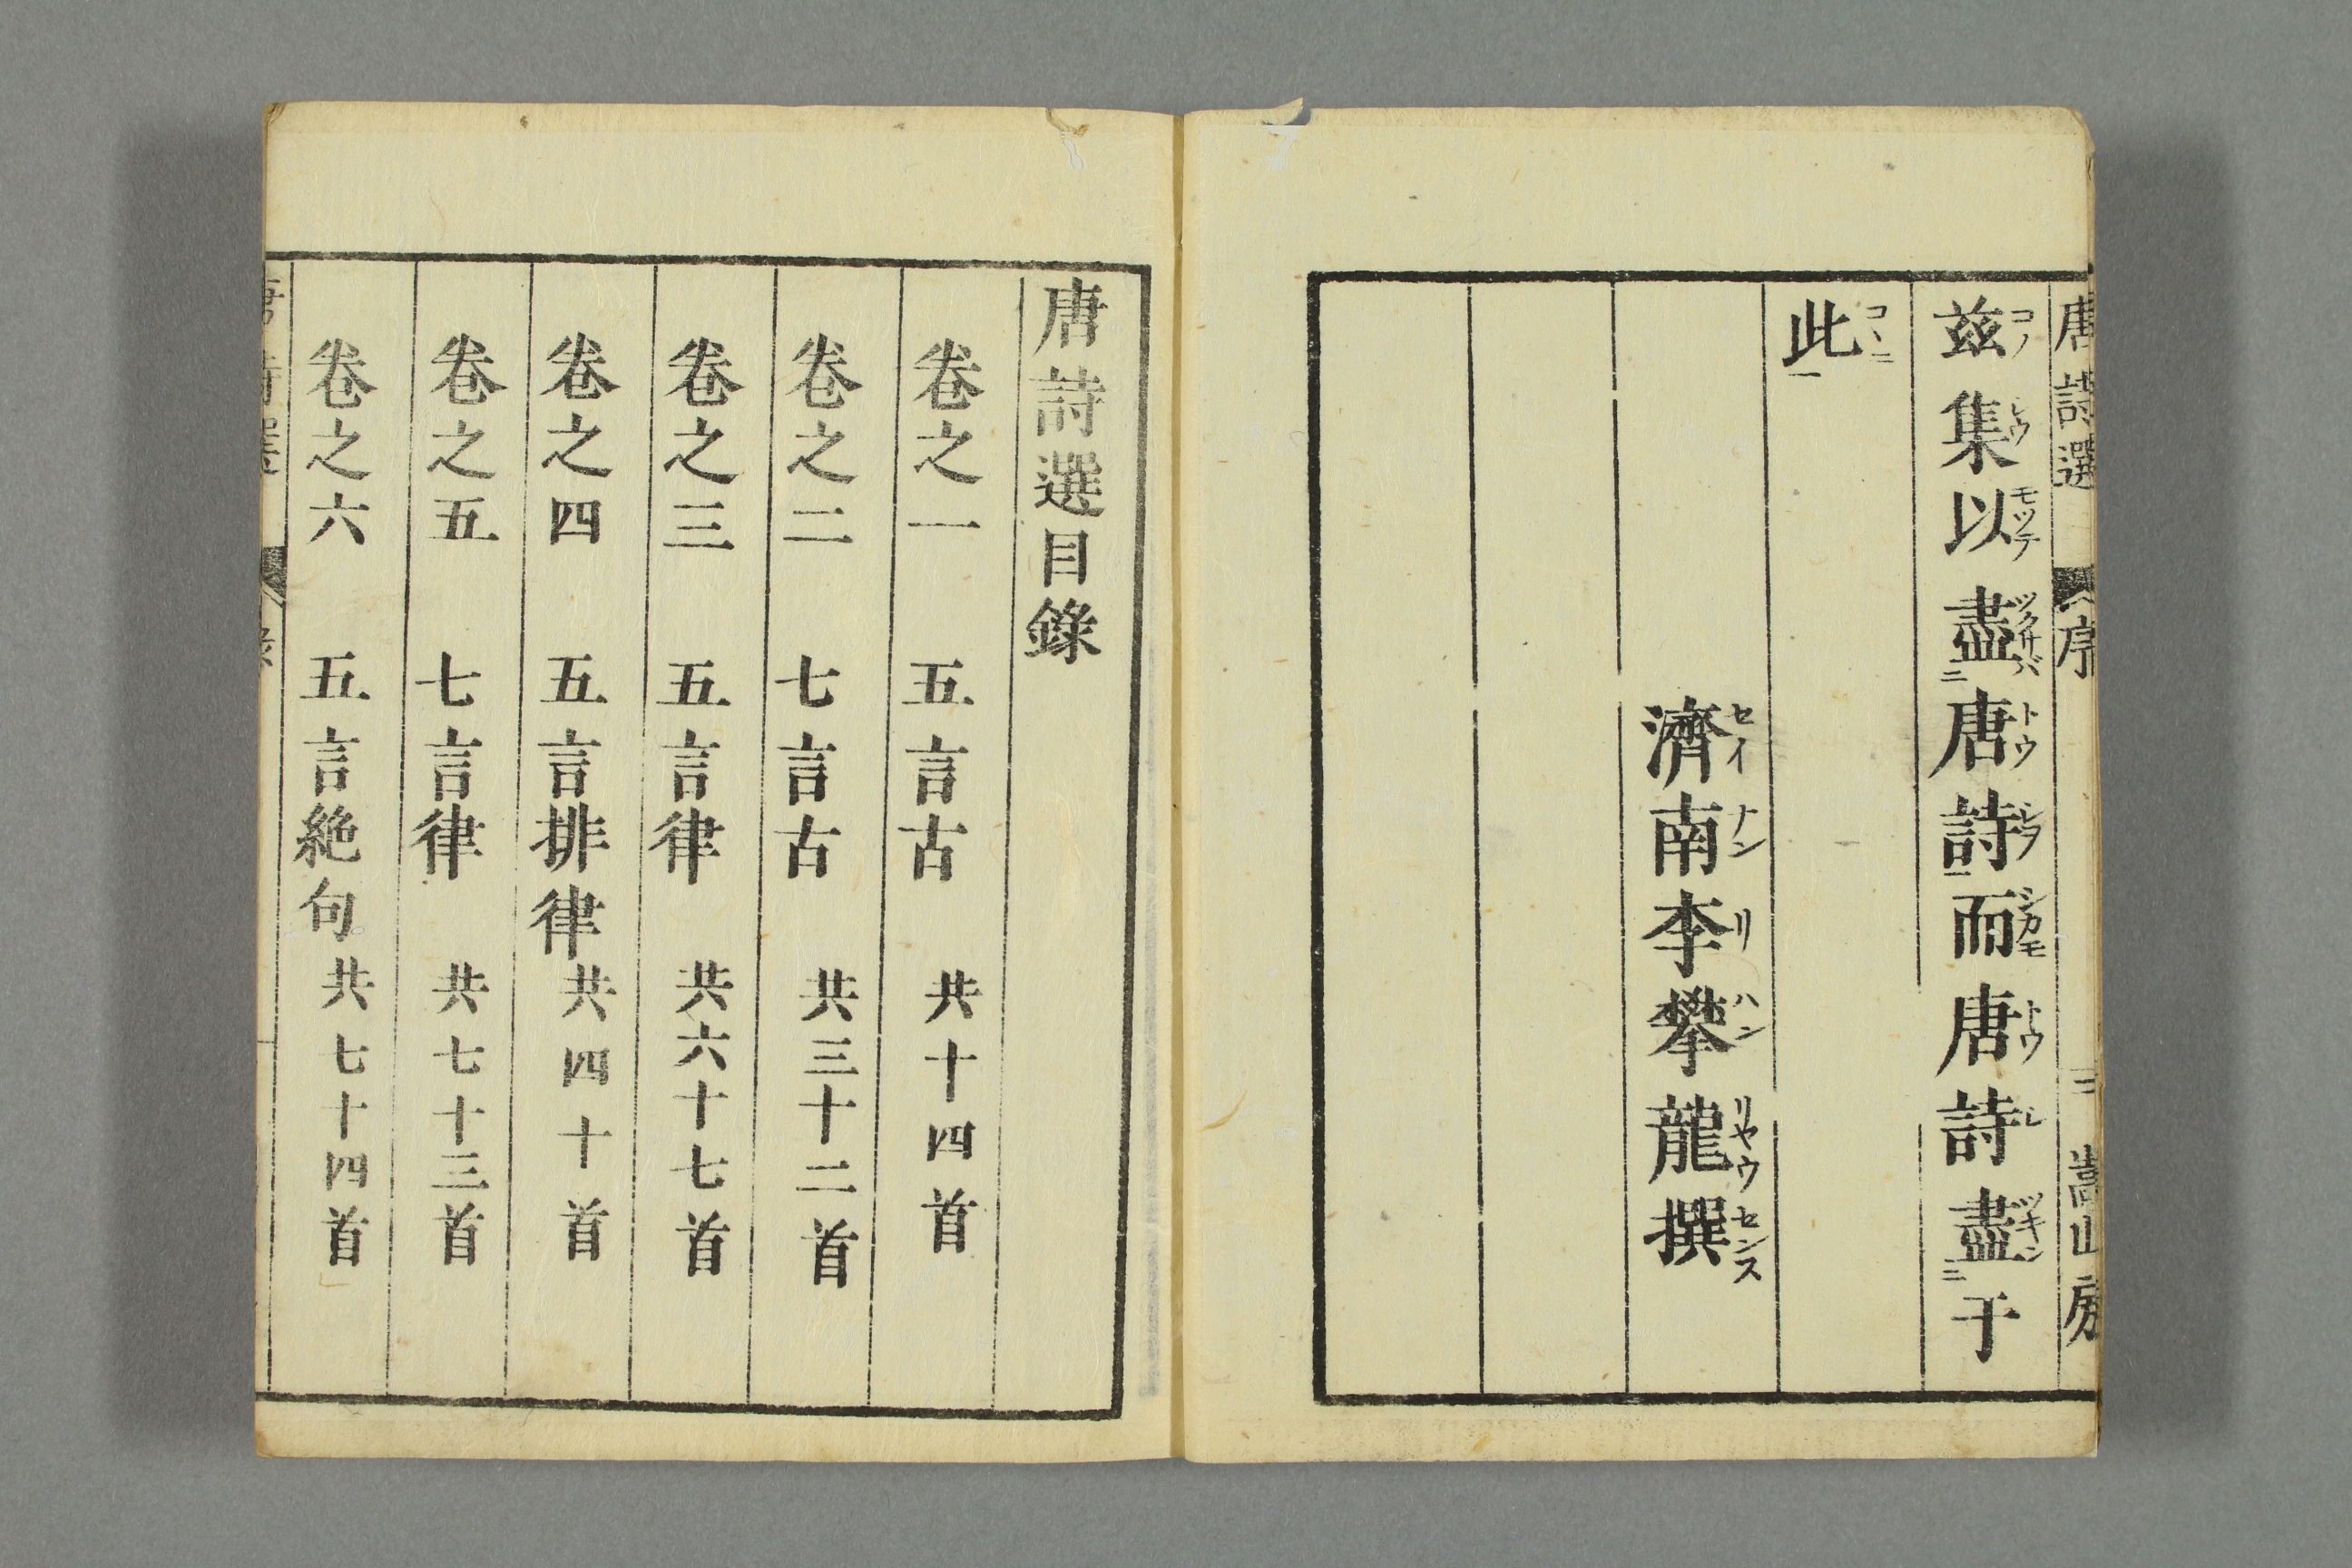 唐詩選 序 三 嵩山房
茲集以盡唐詩而唐詩盡于
此
濟南李攀龍撰
唐詩選目錄
卷之一 五言古 共十四首
卷之二 七言古 共三十二首
卷之三 五言律 共六十七首
卷之四 五言排律 共四十首
卷之五 七言律 共七十三首
卷之六 五言絶句 共七十四首